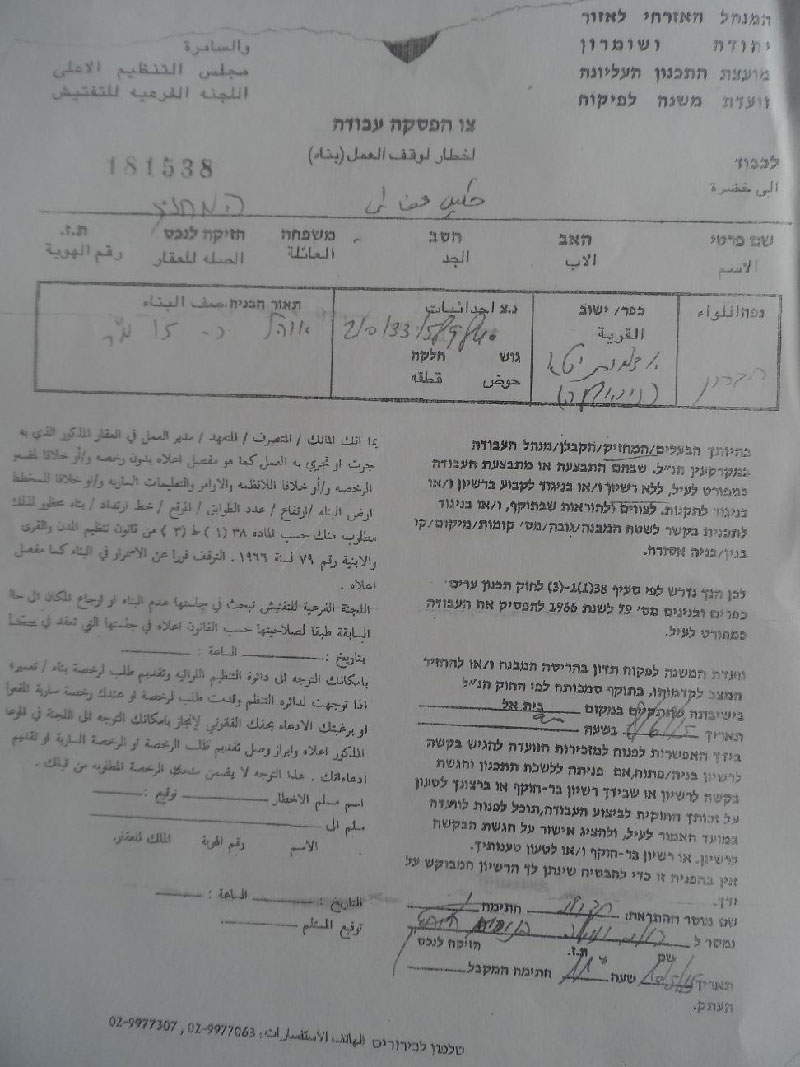 המנהל האזרחי לאזור
יהודה ושומרון
מועצת התכנון העליונה
וועדת משנה לפיקוח
والسامرة
مجلس التنظيم الاعلى
اللجنه الفرعيه للتفتيش
צו הפסקה עבודה
اخطار لوقف العمل (بناء)
181538
לכבוד
الى حضرة
המחזיק
שם פרטי האב הסב משפחה חזיקה לנכס ת.ז.
الاسم الاب الجد العائلة الصله للعقار رقم الهوية
נפה/اللواء
חברון
כפר/ישוב
القرية
נ.צ احداثيات
גוש חלקה
حوض قطعه
תאור הבניה/وصف البناء
אוהל
בהיותך הבעלים/המחזיק/הקבלן/מנהל העבודה
במקרקעין הנ"ל. שבהם התבצעה או מתבצעת העבודה
כמפורט לעיל, ללא רשיון ו/או בניגוד לקבוע ברשיון ו/או
בניגוד לתקנות. לצווים ולהוראות שבתוקף, ו/או בניגוד
לתכנית בקשר לשטח המבנה/גובה/מס' קומות/מיקום/קו
בנין/בניה אסורה.
לכן הנך נדרש לפי סעיף 38(1)-(3) לחוק תכנון ערים
כפרים ובנינים מס' 79 לשנת 1966 להפסיק את העבודה
כמפורט לעיל.
וועדת המשנה לפקוח תדון בהריסת המבנה ו/או להחזיר
המצב לקדמותו, בתוקף סמכותה לפי החוק הנ"ל
בישיבתה שתתקיים במקום בית אל
תאריך בשעה
בידך האפשרות לפנות למזכירות הוועדה להגיש בקשה
לרשיון בניה/פתוח, אם פניתה ללשכת התכנון והגשת
בקשה לרשיון או שבידך רשיון בר-תוקף או ברצונך לטעון
על זכותך החוקית לביצוע העבודה, תוכל לפנות לועדה
במועד האמור לעיל, ולהציג אישור על הגשת הבקשה
לרשיון. או רשיון בר-תוקף ו/או לטעון טענותיך.
אין בהפניה זו כדי להבטיח שינתן לך הרשיון המבוקש על
ידך.
שם מוסר ההתראה: חתימה
נמסר ל
שם ת.ז. הזיקה לנכס
תאריך שעה חתימה המקבל
העתק.
بما انك المالك / المتصرف / المتعهد / مدير العمل في العقار المذكور الذي به
جرت او تجري به العمل كما هو مفصل اعلاه بدون رخصه و/أو خلافا
الرخصه و/أو خلافا للانظمه والاوامر والتعليمات الساريه و/او خلافا للمخطط
ارض البناء /ارتفاع / عدد الطوابق / الموقع / خط ارتداد / بناء محظور لذلك
مطلوب منك حسب الماده ٣٨ (١) ط (٣) من قانون تنظيم المدن والقرى
والابنية رقم ٧٩ لسنة ١٩٦٦. التوقف فورا عن الاستمرار في البناء كما مفصل
اعلاه .
اللجنة الفرعية للتفتيش تبحث في جلستها هدم البناء او ارجاع المكان الى حالته
السابقة طبقا لصلاحيتها حسب القانون اعلاه في جلستها التي تعقد في
بتاريخ: الساعة :
بامكانك التوجه الى دائرة التنظيم اللوائيه وتقديم طلب لرخصة بناء / تعمير،
اذا توجهت لدائره التنظم وقدمت طلب لرخصة او عندك رخصة سارية المفعول
او برغبتك الادعاء بحقك القانوني لإنجاز بامكانك التوجه الى اللجنة في الموعد
المذكور اعلاه وابراز وصل تقديم طلب الرخصة او الرخصة السارية او تقديم
ادعاءاتك . هذا التوجه لا يضمن منحك الرخصة المطلوبه من قبلك .
اسم مسلم الاخطار توقيع :
سلم الى
الاسم رقم الهوية الملك للعقار.
التاريخ : الساعة :
توقيع المستلم
טלפון לבירורים الهاتف الاستفسارات: 02-9977063 , 02-9977307